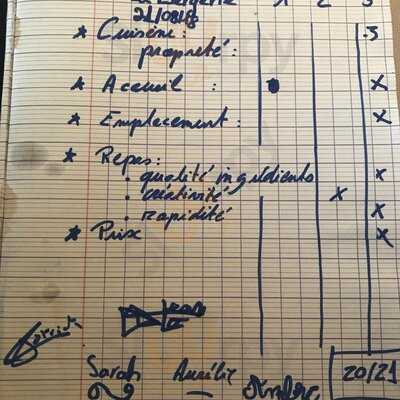 1 2 3
21/08/18
* Cuisine : .3
propreté :
* Accueil : ● x
* Emplacement : x
* Repas :
. qualité ingrédients x
. créativité x
. rapidité x
* Prix x
Sarah Aurélie 20/21